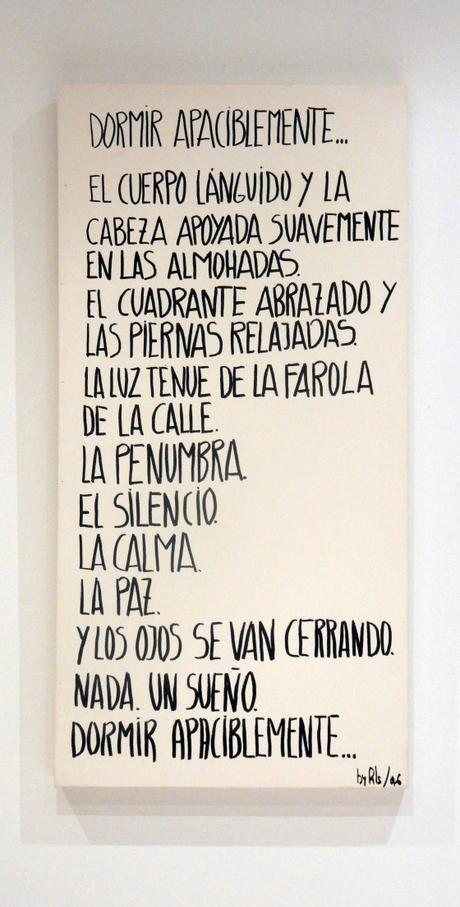 DORMIR APACIBLEMENTE...
EL CUERPO LÁNGUIDO Y LA
CABEZA APOYADA SUAVEMENTE
EN LAS ALMOHADAS.
EL CUADRANTE ABRAZADO Y
LAS PIERNAS RELAJADAS.
LA LUZ TENUE DE LA FAROLA
DE LA CALLE.
LA PENUMBRA.
EL SILENCIO.
LA CALMA.
LA PAZ.
Y LOS OJOS SE VAN CERRANDO.
NADA. UN SUEÑO.
DORMIR APACIBLEMENTE...
by